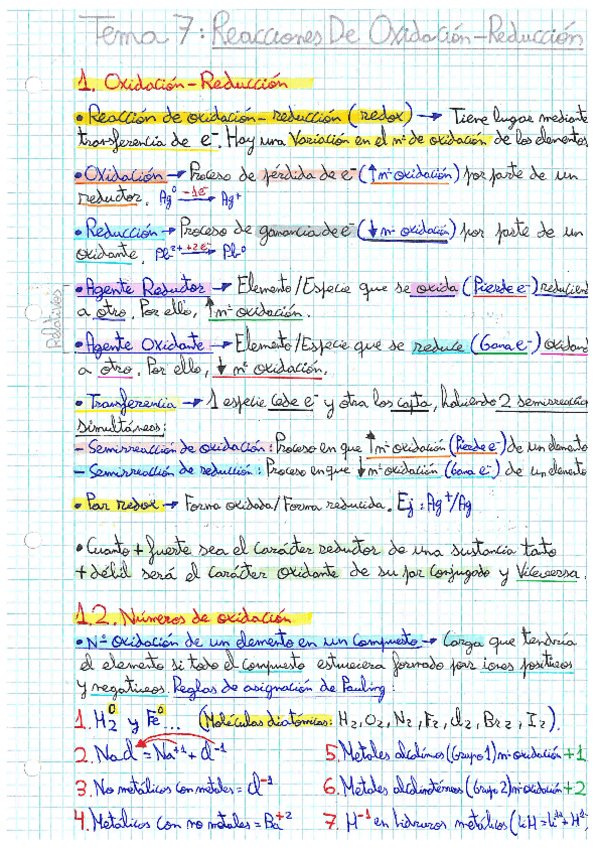 Tema 7: Reacciones De Oxidación-Reducción
1. Oxidación-Reducción
• Reacción de oxidación-reducción (redox) → Tiene lugar mediante
transferencia de e⁻. Hay una variación en el nº de oxidación de los elementos
• Oxidación → Proceso de pérdida de e⁻ (↑nº oxidación) por parte de un
reductor. Ag⁰ –1e⁻→ Ag⁺
• Reducción → Proceso de ganancia de e⁻ (↓nº oxidación) por parte de un
oxidante. Pb²⁺ +2e⁻→ Pb⁰
Relativos
• Agente Reductor → Elemento/Especie que se oxida (Pierde e⁻) reducien
a otro. Por ello, ↑nº oxidación.
• Agente Oxidante → Elemento/Especie que se reduce (Gana e⁻) oxidand
a otro. Por ello, ↓ nº oxidación.
• Transferencia → 1 especie cede e⁻ y otra los capta, habiendo 2 semirreaccio
simultáneas:
- Semirreacción de oxidación: Proceso en que ↑nº oxidación (Pierde e⁻) de un elemento
- Semirreacción de reducción: Proceso en que ↓nº oxidación (Gana e⁻) de un elemento
• Par redox → Forma oxidada/Forma reducida. Ej: Ag⁺/Ag
• Cuanto + fuerte sea el carácter reductor de una sustancia tanto
+ débil será el carácter oxidante de su par conjugado y viceversa.
1.2. Números de oxidación
• Nº Oxidación de un elemento en un compuesto → Carga que tendría
el elemento si todo el compuesto estuviera formado por iones positivos
y negativos. Reglas de asignación de Pauling:
1. H₂⁰ y Fe⁰... (Moléculas diatómicas: H₂, O₂, N₂, F₂, Cl₂, Br₂, I₂).
2. NaCl = Na⁺¹ + Cl⁻¹
5. Metales alcalinos (Grupo 1) nº oxidación +1
3. No metálicos con metales = Cl⁻¹
6. Metales alcalinotérreos (Grupo 2) nº oxidación +2
4. Metálicos con no metales = Ba⁺²
7. H⁻¹ en hidruros metálicos (LiH = Li¹⁺ + H¹⁻